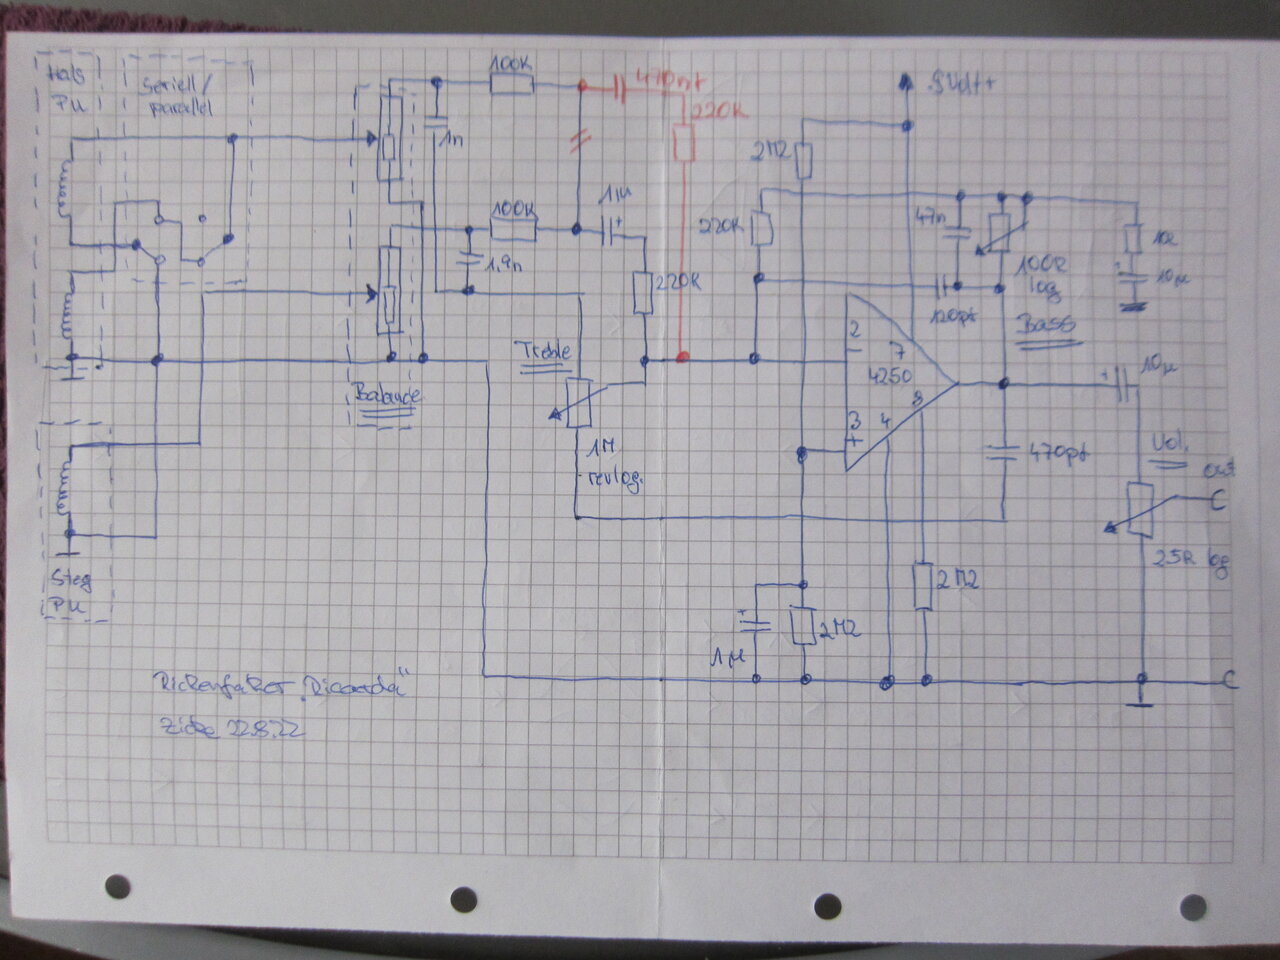 Hals
PU
Seriell/
parallel
100K
470nf
220K
9Volt+
1n
2M2
1µ
+
100K
220K
47n
10k
1,9n
220K
100k
log
10µ
+
120pf
Bass
Treble
2
-
7
4250
8
3
+
4
10µ
+
Balance
1M
revlog.
470pf
Vol.
out
25k log
Steg
PU
2M2
+
1µ
2M2
Zicke 22.8.22